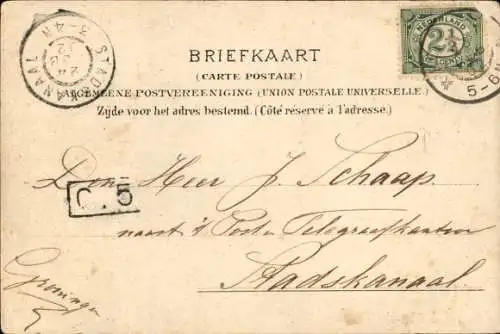 STADSKANAAL
3-4N
24
12
NEDERLAND
2½
CENT
5-6N
BRIEFKAART
(CARTE POSTALE)
ALGEMEENE POSTVEREENIGING (UNION POSTALE UNIVERSELLE.)
Zijde voor het adres bestemd. (Côté réservé à l'adresse.)
Den Heer J. Schaap
C. 5
naast 't Post en Telegraafkantoor
Stadskanaal
Groningen